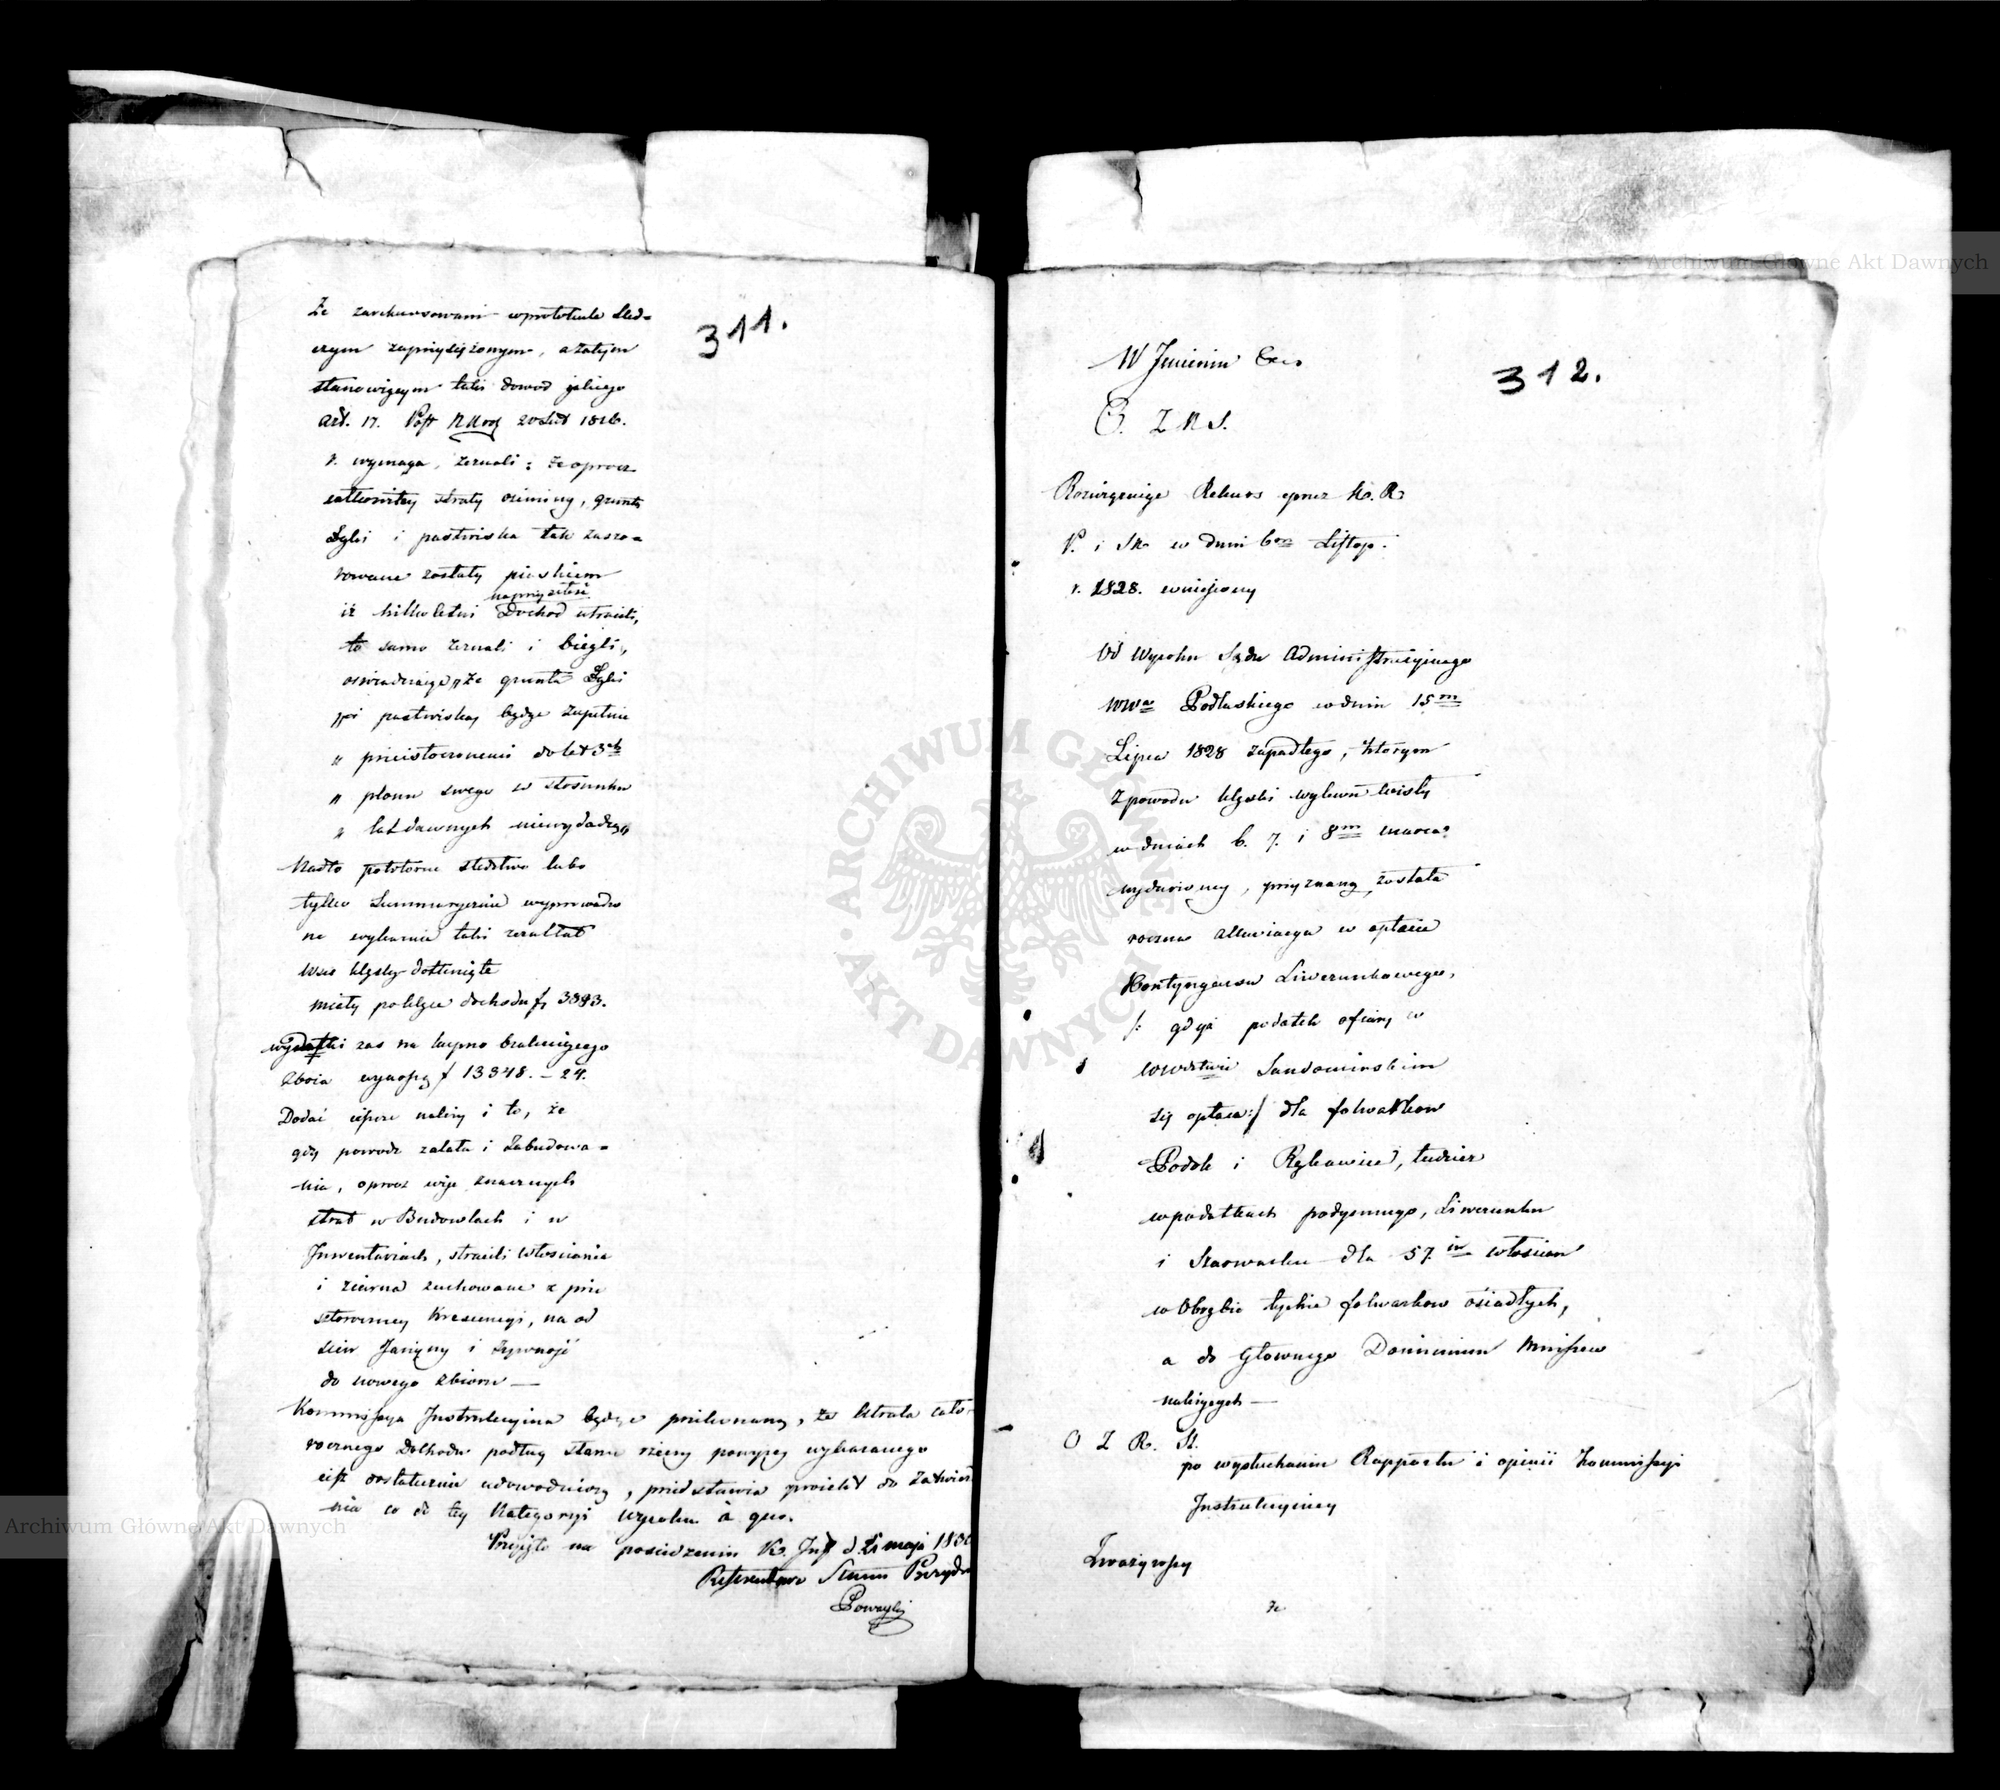 311.
Że zarekursowani w protokule śled-
czym zaprzysiężonym, a zatym
stanowiącym taki dowod jakiego
Art. 17. Post 1816.
r. wymaga, zeznali: że oprocz
całkowitey straty oziminy, grunta
Łąki i pastwiska tak zaszo-
rowane zostały piaskiem
naprzyszłość
iż kilkoletni Dochod utracili,
to samo zeznali i biegli,
oswiadczając, „że grunta Łąki
„i pastwiska, będąc zupełnie
„ do lat 3ch
„ plonu swego w stosunku
„ lat dawnych niewydadzą„
Nadto powtorne śledztwo lubo
tylko Summarycznie wyprowadzo
ne wykazuie taki rezultat
Wsie klęską dotknięte
miały pobliżce dochodu f. 3893.
wydatki zas na kupno brakuiącego
Zboia wynoszą f 13348. – 24.
Dodać ieszcze należy i to, że
gdy powodz zalała i Zabudowa-
nia, oprocz więc znacznych
strat w Budowlach i w
Inwentarzach, stracili włościanie
i ziarna zachowane z prze
szłoroczney Krescencyi, na od
siew Jarzyny i żywność
do nowego zbioru —
Kommissya Instrukcyina będąc przekonaną, że Utrata cało-
rocznego Dochodu podług stanu rzeczy powyżey wykazanego
iest dostatecznie udowodnioną, przedstawia proiekt do Zatwierdze
nia co do tey Kategoryi wyroku à quo.
Przyięto na posiedzeniu K. Inst d. 25 maja 1830
Referendarz Stanu
312.
W Jmieniu &c.
O. Z R S.
Rozwiązuiąc Rekurs przez Ko. R.
P. i Sk. w dniu 6m Listop.
r. 1828. wniesiony
Od Wyroku Sądu Administracyinego
Wwa Podlaskiego w dniu 15m
Lipca 1828 zapadłego, którym
z powodu klęski wylewu wisły
w dniach 6. 7. i 8m marca
wydarzoney, przyznaną została
roczna allewiacya w opłacie
Kontyngensu Liwerunkowego,
/: gdyż podatek ofiary w
Wwdztwie Sandomirskim
się opłaca :/ dla folwarkow
Podole i Rękawice, tudzież
w podatkach podymnego, Liwerunku
i Szarwarku dla 57. iu włościan
w Obrębie tychże folwarkow osiadłych,
a do Głównego Dominium Mniszew
należących —
O Z R. St.
po wysłuchaniu Rapportu i opinii Kommissyi
Instrukcyiney
Zważywszy
że